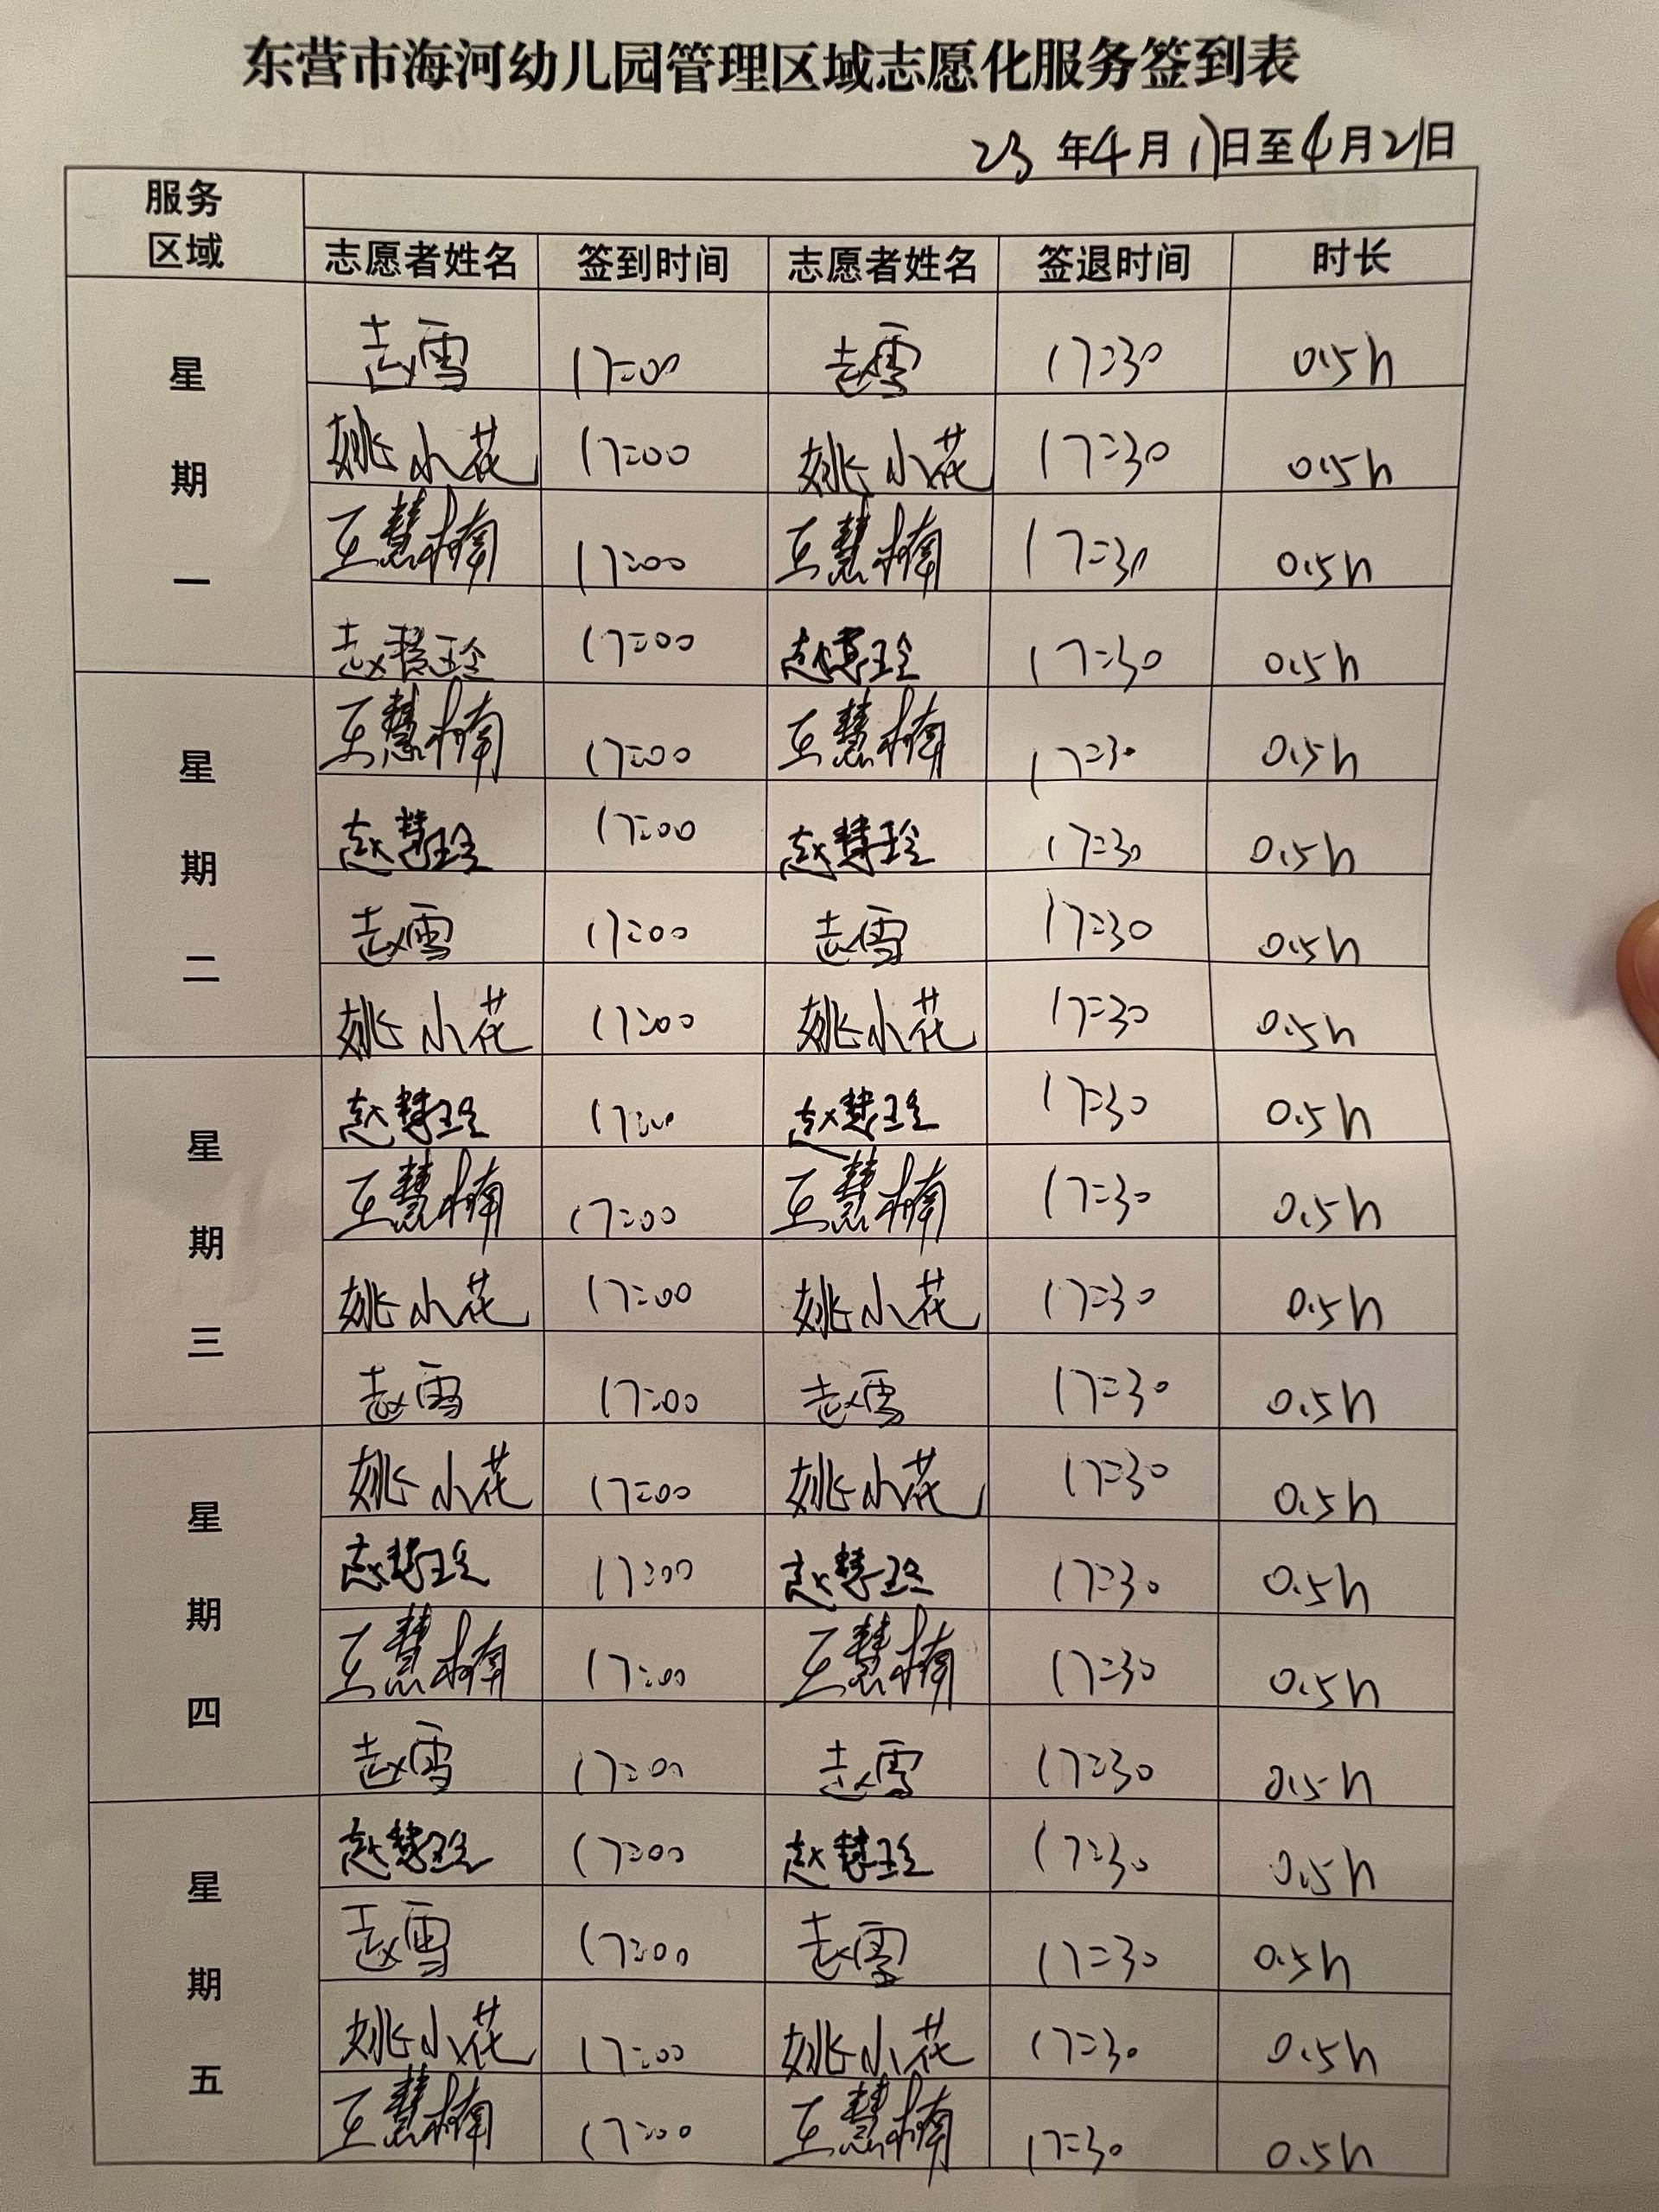 东营市海河幼儿园管理区域志愿化服务签到表
23 年 4 月 17 日至 4 月 21 日
服务区域
志愿者姓名 签到时间 志愿者姓名 签退时间 时长
星期一
赵雪 17:00 赵雪 17:30 0.5h
姚小花 17:00 姚小花 17:30 0.5h
王慧楠 17:00 王慧楠 17:30 0.5h
赵慧玲 17:00 赵慧玲 17:30 0.5h
星期二
王慧楠 17:00 王慧楠 17:30 0.5h
赵慧玲 17:00 赵慧玲 17:30 0.5h
赵雪 17:00 赵雪 17:30 0.5h
姚小花 17:00 姚小花 17:30 0.5h
星期三
赵慧玲 17:00 赵慧玲 17:30 0.5h
王慧楠 17:00 王慧楠 17:30 0.5h
姚小花 17:00 姚小花 17:30 0.5h
赵雪 17:00 赵雪 17:30 0.5h
星期四
姚小花 17:00 姚小花 17:30 0.5h
赵慧玲 17:00 赵慧玲 17:30 0.5h
王慧楠 17:00 王慧楠 17:30 0.5h
赵雪 17:00 赵雪 17:30 0.5h
星期五
赵慧玲 17:00 赵慧玲 17:30 0.5h
赵雪 17:00 赵雪 17:30 0.5h
姚小花 17:00 姚小花 17:30 0.5h
王慧楠 17:00 王慧楠 17:30 0.5h